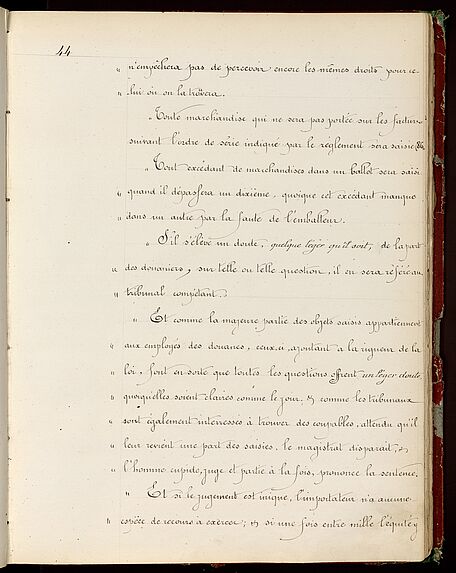 44
" n'empêchera pas de percevoir encore les mêmes droits pour ce-
" lui où on la trouvera.
" Toute marchandise qui ne sera pas portée sur les factures
suivant l'ordre de série indiqué par le règlement sera saisie
" Tout excédant de marchandises dans un ballot sera saisi
" quand il dépassera un dixième, quoique cet excédant manque
" dans un autre par la faute de l'emballeur.
" S'il s'élève un doute, quelque léger qu'il soit, de la part
" des douaniers, sur telle ou telle question, il en sera référé au
" tribunal compétant.
" Et comme la majeure partie des objets saisis appartiennent
" aux employés des douanes, ceux-ci, ajoutant à la rigueur de la
" loi, font en sorte que toutes les questions offrent un léger doute,
" quoiqu'elles soient claires comme le jour, & comme les tribunaux
" sont également intéressés à trouver des coupables, attendu qu'il
" leur revient une part des saisies, le magistrat disparait, &
" l'homme cupide, juge et partie à la fois, prononce la sentence.
" Et si le jugement est inique, l'importateur n'a aucune
" espèce de recours à exercer; & si une fois entre mille l'équité y